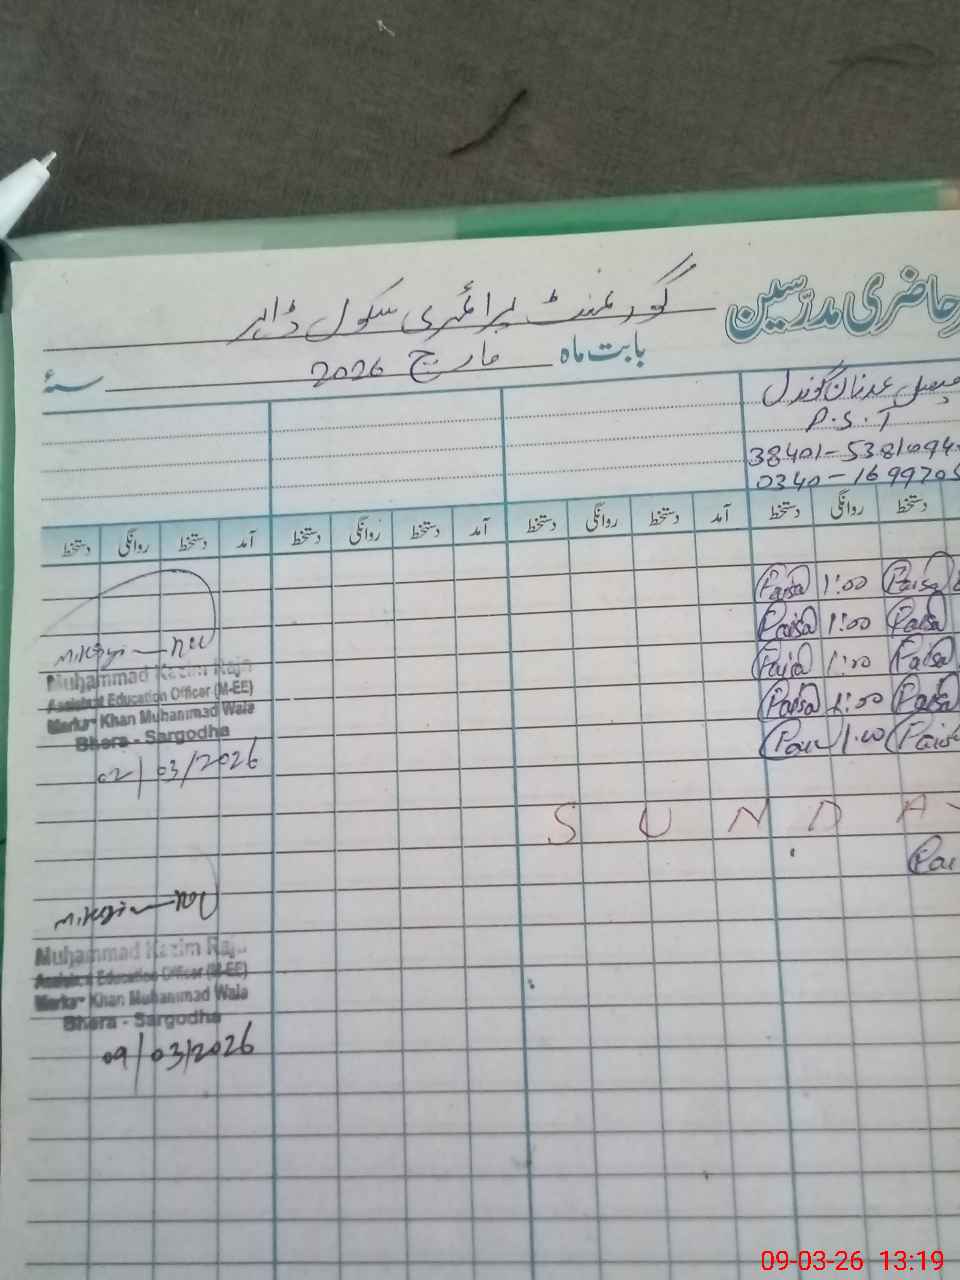 حاضری مدرسین
گورنمنٹ پرائمری سکول ڈاہر
بابت ماہ مارچ 2026 سنہٴ
فیصل عدنان گوندل
P.S.T
38401-5381094-
0340-1699705
دستخط روانگی دستخط آمد دستخط روانگی دستخط آمد دستخط روانگی دستخط
1:00
1:00
1:00
1:00
1:00
Muhammad Kazim Raja
Assistant Education Officer (M-EE)
Markaz Khan Muhammad Wala
Bhera - Sargodha
02/03/2026
SUNDAY
Muhammad Kazim Raja
Assistant Education Officer (M-EE)
Markaz Khan Muhammad Wala
Bhera - Sargodha
09/03/2026
09-03-26 13:19